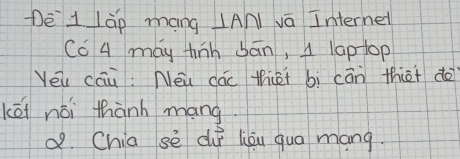 Đề 1 Lắp mạng LAN và Internel
Có 4 máy tính bàn, 1 laptop
Yêu cầu: Nêu các thiết bị cần thiết để
kết nối thành mạng.
2. Chia sẻ dữ liệu qua mạng.